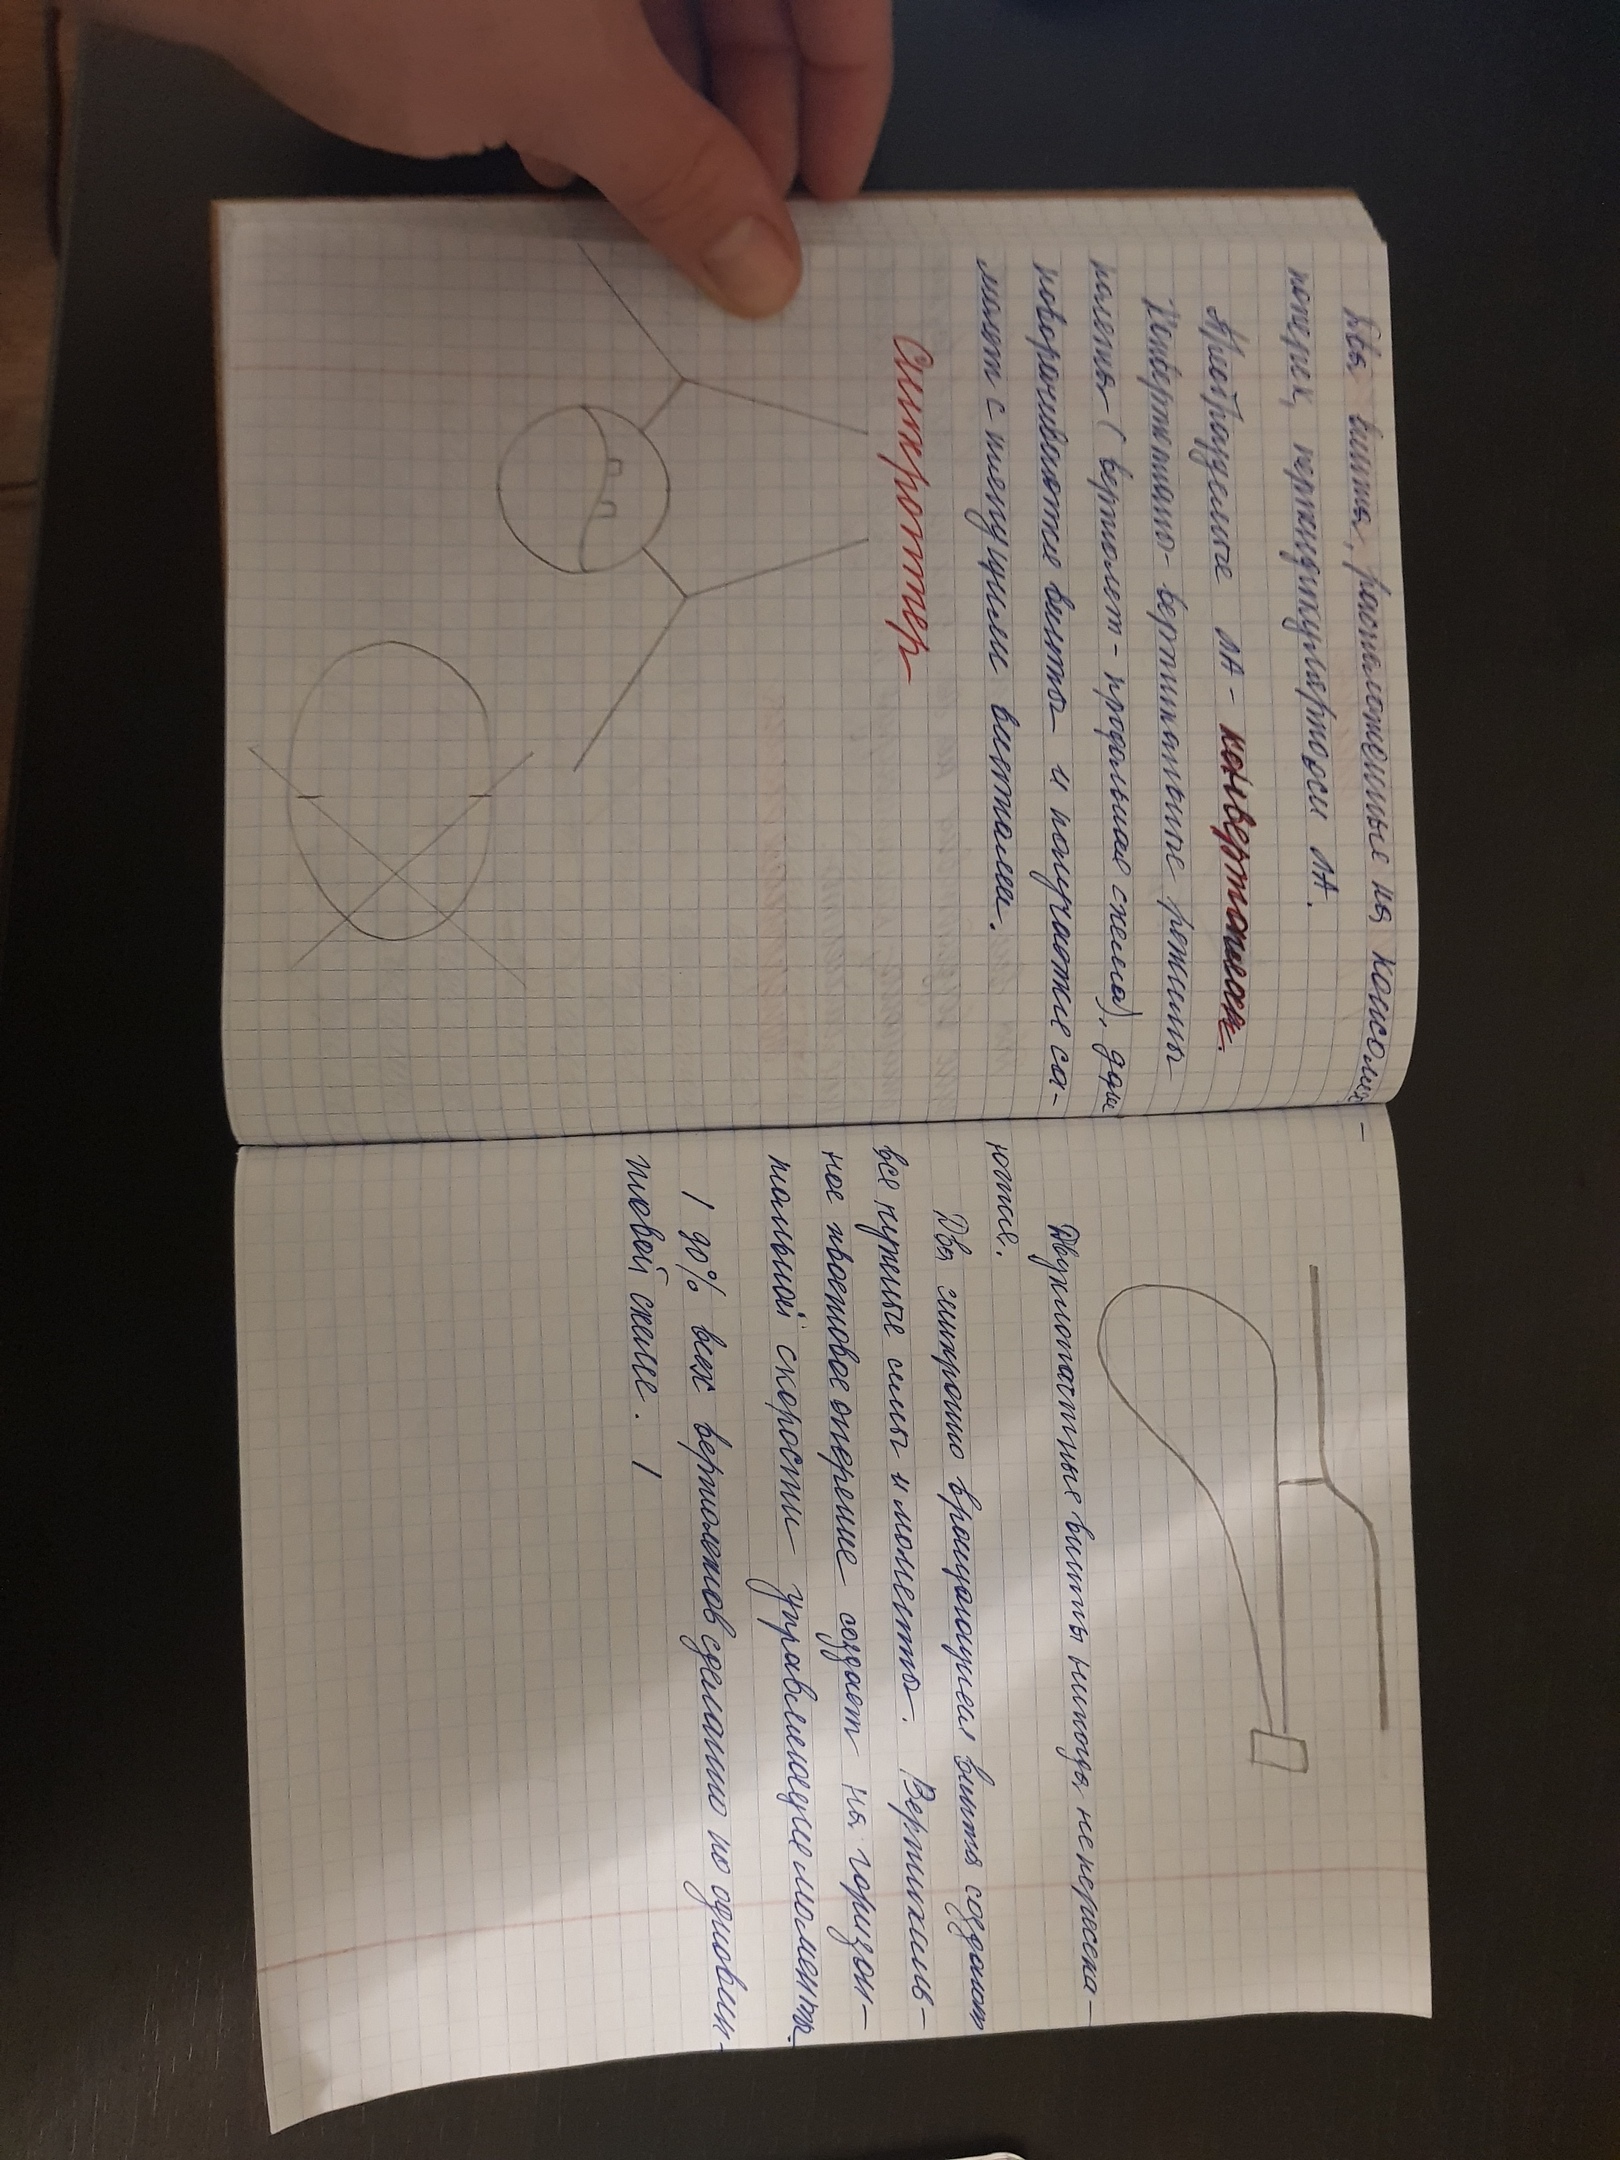 Два винта, расположенные на консолях -
поперек, перпендикулярно оси ЛА.
Преобразуемые ЛА - конвертоплан.
Конвертопланы - вертикальные режимы
полета (вертолет - продольная схема), далее
поворачиваются винты и получается са-
молет с тянущими винтами.
Синхроптер
Двухлопастные винты никогда не пересека-
ются.
Два синхронно вращающиеся винта создают
все нужные силы и моменты. Вертикаль-
ное хвостовое оперение создает на горизон-
тальной скорости управляющие моменты.
/ 90% всех вертолетов сделанно по одновин-
товой схеме. /